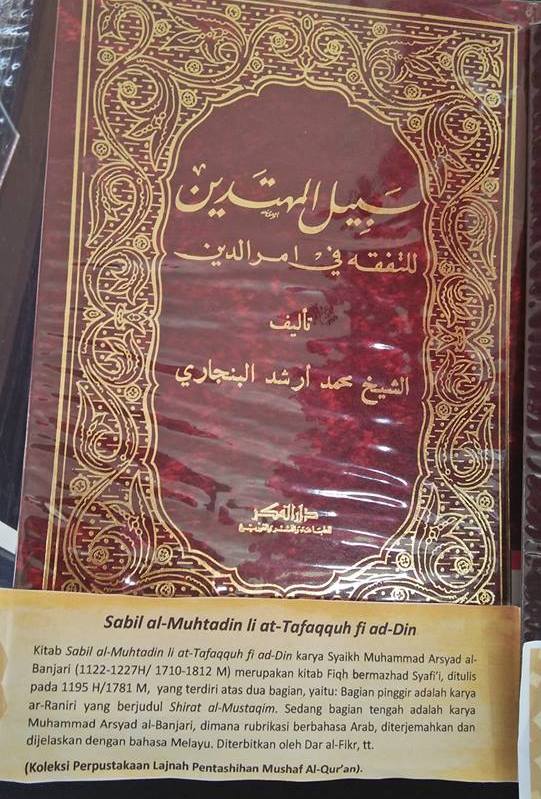 سبيل المهتدين
للتفقه في امر الدين
تأليف
الشيخ محمد أرشد البنجاري
دار الفكر
للطباعة والنشر والتوزيع
Sabil al-Muhtadin li at-Tafaqquh fi ad-Din
Kitab Sabil al-Muhtadin li at-Tafaqquh fi ad-Din karya Syaikh Muhammad Arsyad al-
Banjari (1122-1227H/ 1710-1812 M) merupakan kitab Fiqh bermazhad Syafi'i, ditulis
pada 1195 H/1781 M, yang terdiri atas dua bagian, yaitu: Bagian pinggir adalah karya
ar-Raniri yang berjudul Shirat al-Mustaqim. Sedang bagian tengah adalah karya
Muhammad Arsyad al-Banjari, dimana rubrikasi berbahasa Arab, diterjemahkan dan
dijelaskan dengan bahasa Melayu. Diterbitkan oleh Dar al-Fikr, tt.
(Koleksi Perpustakaan Lajnah Pentashihan Mushaf Al-Qur'an).